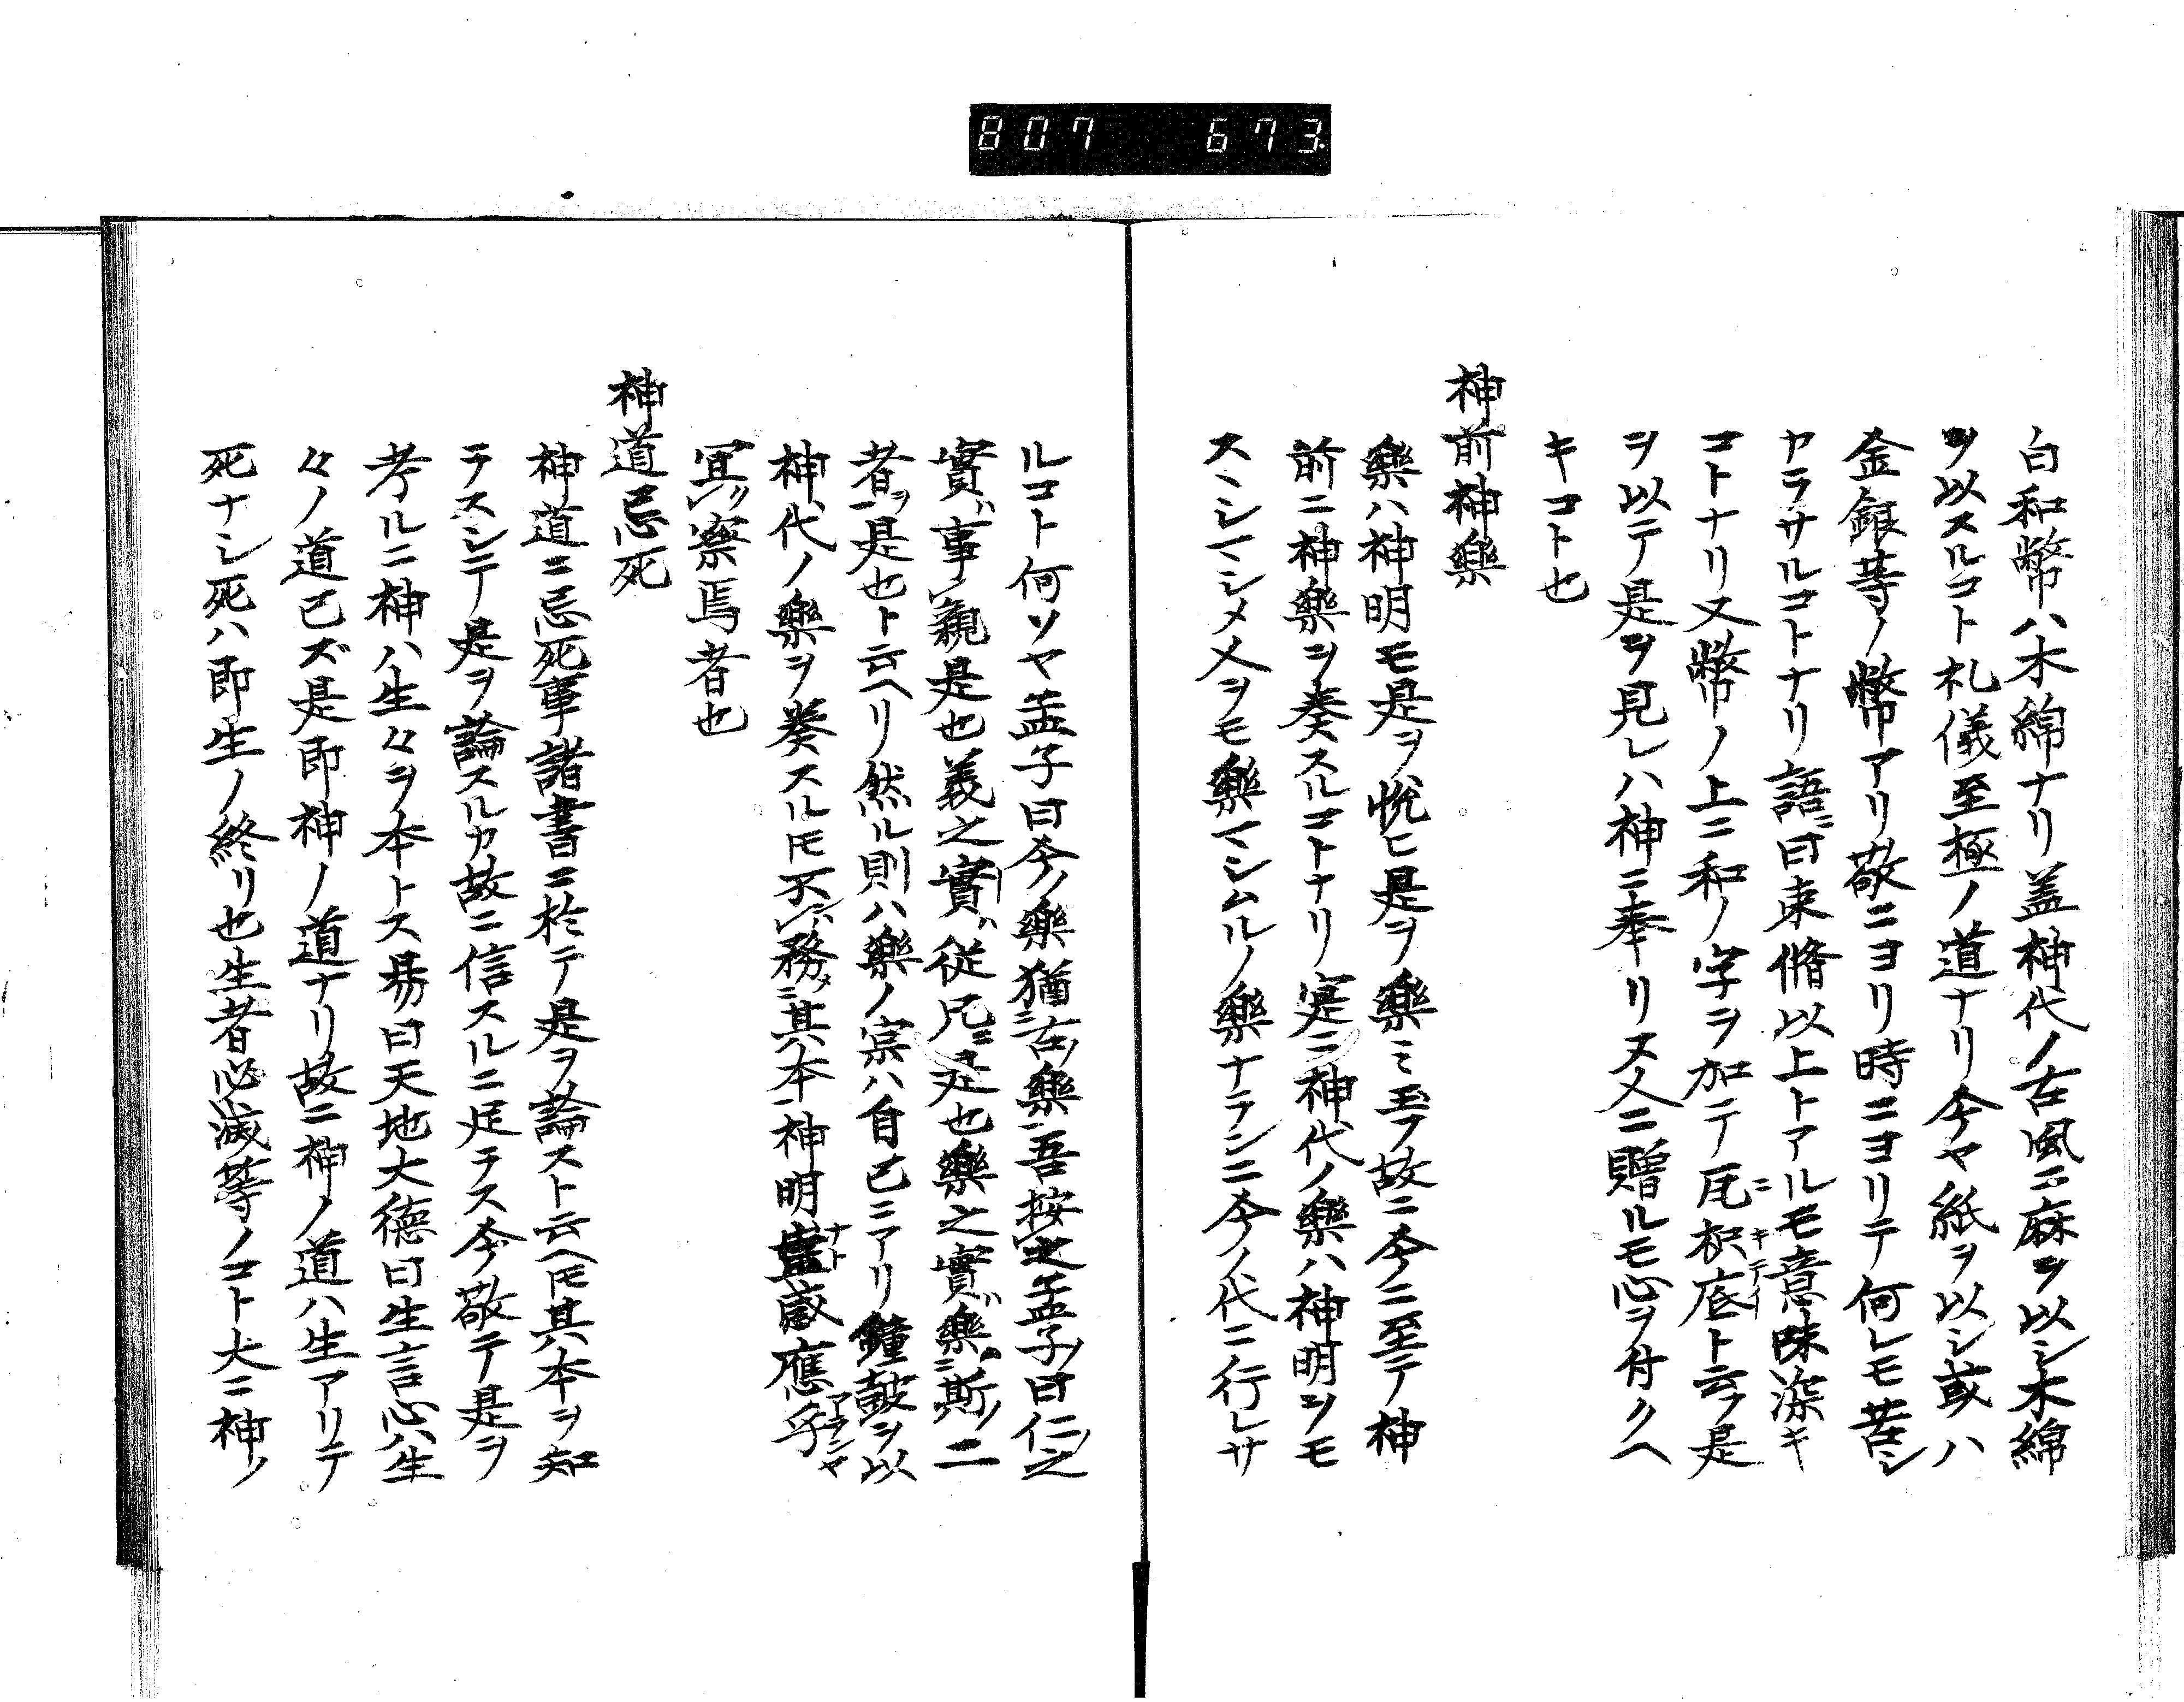 807 673
白和幣ハ木綿ナリ蓋神代ノ古風ニ麻ヲ以シ木綿
ヲ以スルコト札儀至極ノ道ナリ今ヤ紙ヲ以シ或ハ
金銀等ノ幣アリ敬ニヨリ時ニヨリテ何レモ苦シ
カラサルコトナリ語ニ曰束脩以上トアルモ意味深キ
コトナリ又幣ノ上ニ和ノ字ヲ加テ尼枳底ト云フ是
ヲ以テ是ヲ見レハ神ニ奉リ又人ニ贈ルモ心ヲ付クヘ
キコト也
神前神樂
樂ハ神明モ是ヲ悦ヒ是ヲ樂ミ玉フ故ニ今ニ至テ神
前ニ神樂ヲ奏スルコトナリ寔ニ神代ノ樂ハ神明ヲモ
スヽシマシメ人ヲモ樂マシムルノ樂ナランニ今ノ代ニ行レサ
ルコト何ソヤ孟子曰今ノ樂猶古ノ樂吾按之孟子曰仁之
實ハ事親是也義之實ハ從兄是也樂之實ハ樂斯ノ二
者ヲ是也ト云ヘリ然ル則ハ樂ノ宗ハ自己ニアリ鐘鼓ヲ以
神代ノ樂ヲ奏スルトモ不務其本神明豈感應アランヤ乎
冝察焉者也
神道忌死
神道ニ忌死事諸書ニ於テ是ヲ論スト云ヘトモ其本ヲ知
ラスシテ是ヲ論スルカ故ニ信スルニ足ラス今敬テ是ヲ
考ルニ神ハ生々ヲ本トス易曰天地大德曰生言心ハ生
々ノ道已ズ是即神ノ道ナリ故ニ神ノ道ハ生アリテ
死ナシ死ハ即生ノ終リ也生者必滅等ノコト大ニ神ノ